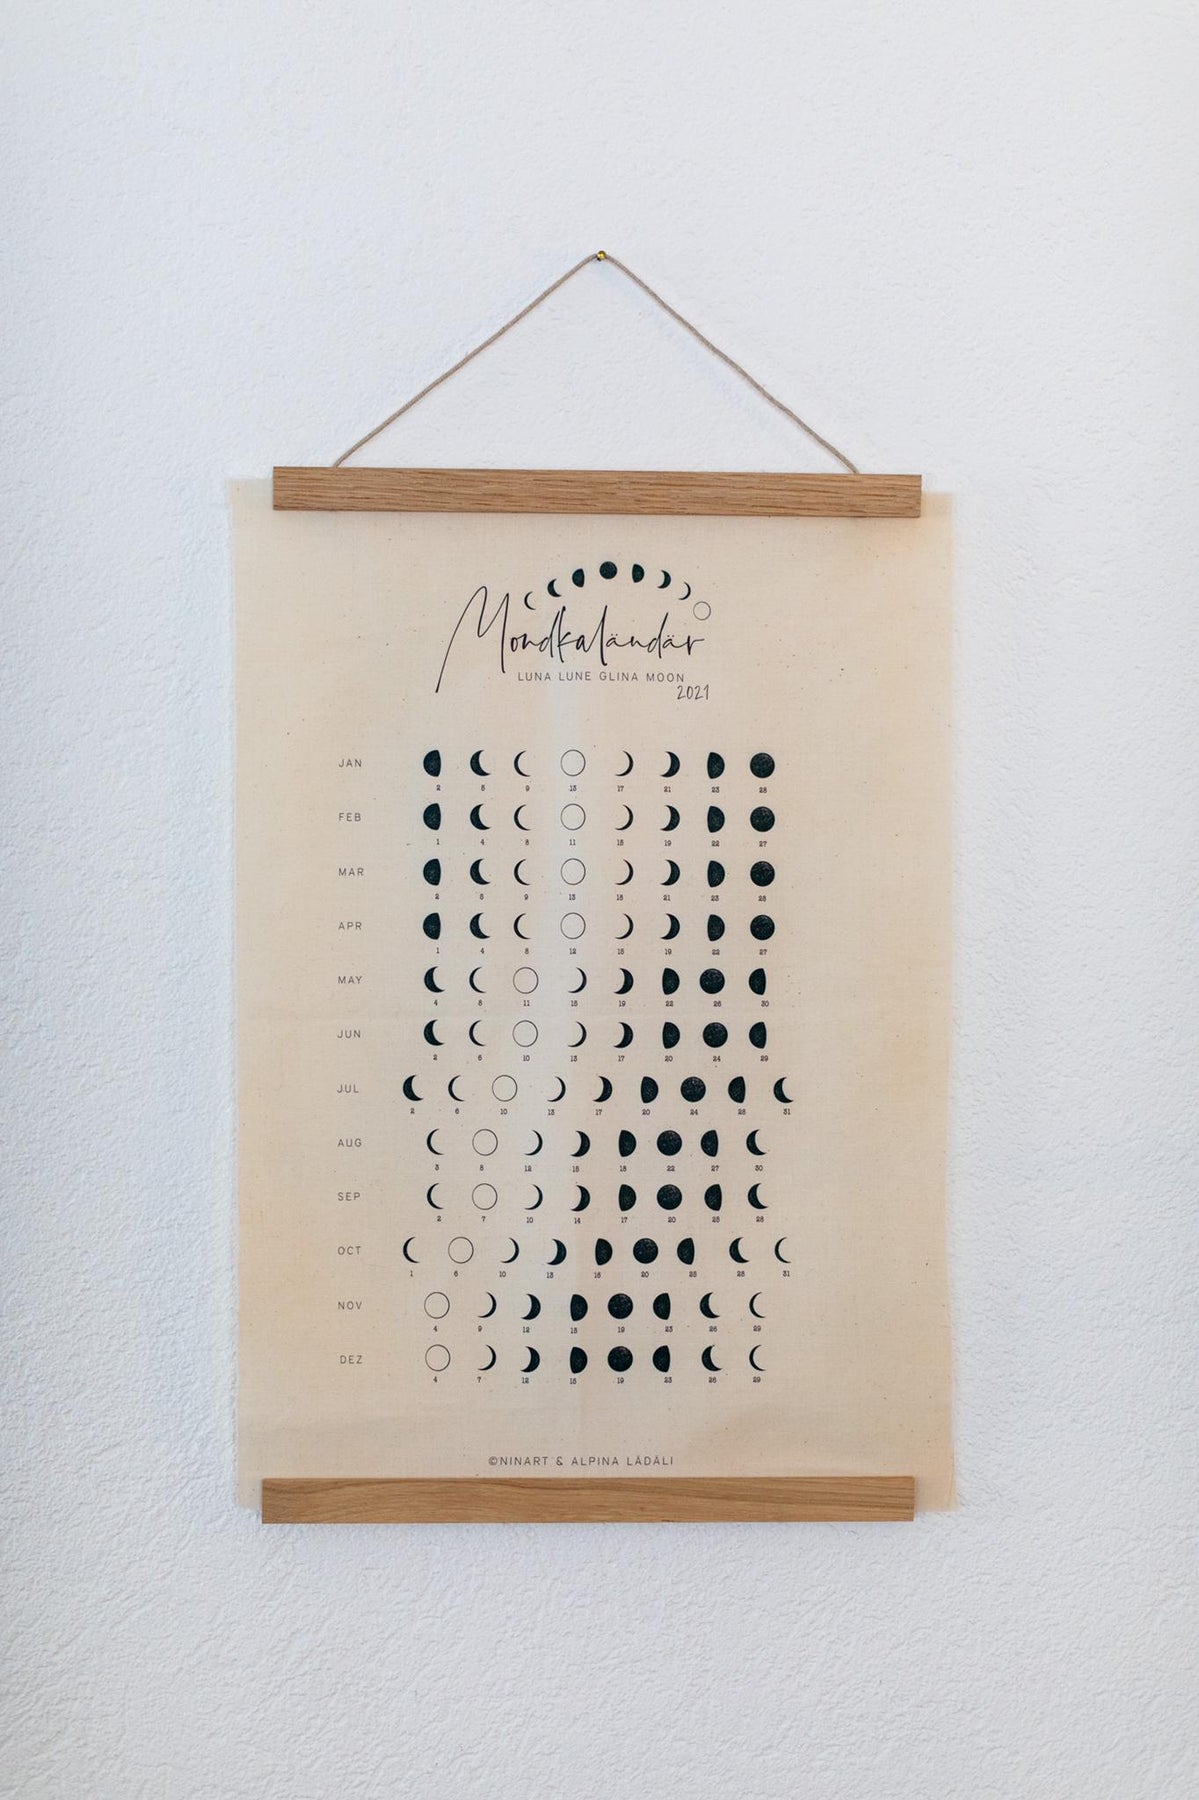 Mondkaländär
LUNA LUNE GLINA MOON
2021
JAN
2 5 9 13 17 21 23 28
FEB
1 4 8 11 15 19 22 27
MAR
2 5 9 13 18 21 23 28
APR
1 4 8 12 15 19 22 27
MAY
4 8 11 15 19 22 26 30
JUN
2 6 10 13 17 20 24 29
JUL
2 6 10 13 17 20 24 28 31
AUG
3 8 12 15 18 22 27 30
SEP
2 7 10 14 17 20 25 28
OCT
1 6 10 13 16 20 25 28 31
NOV
4 9 12 15 19 23 26 29
DEZ
4 7 12 15 19 23 26 29
©NINART & ALPINA LÄDÄLI